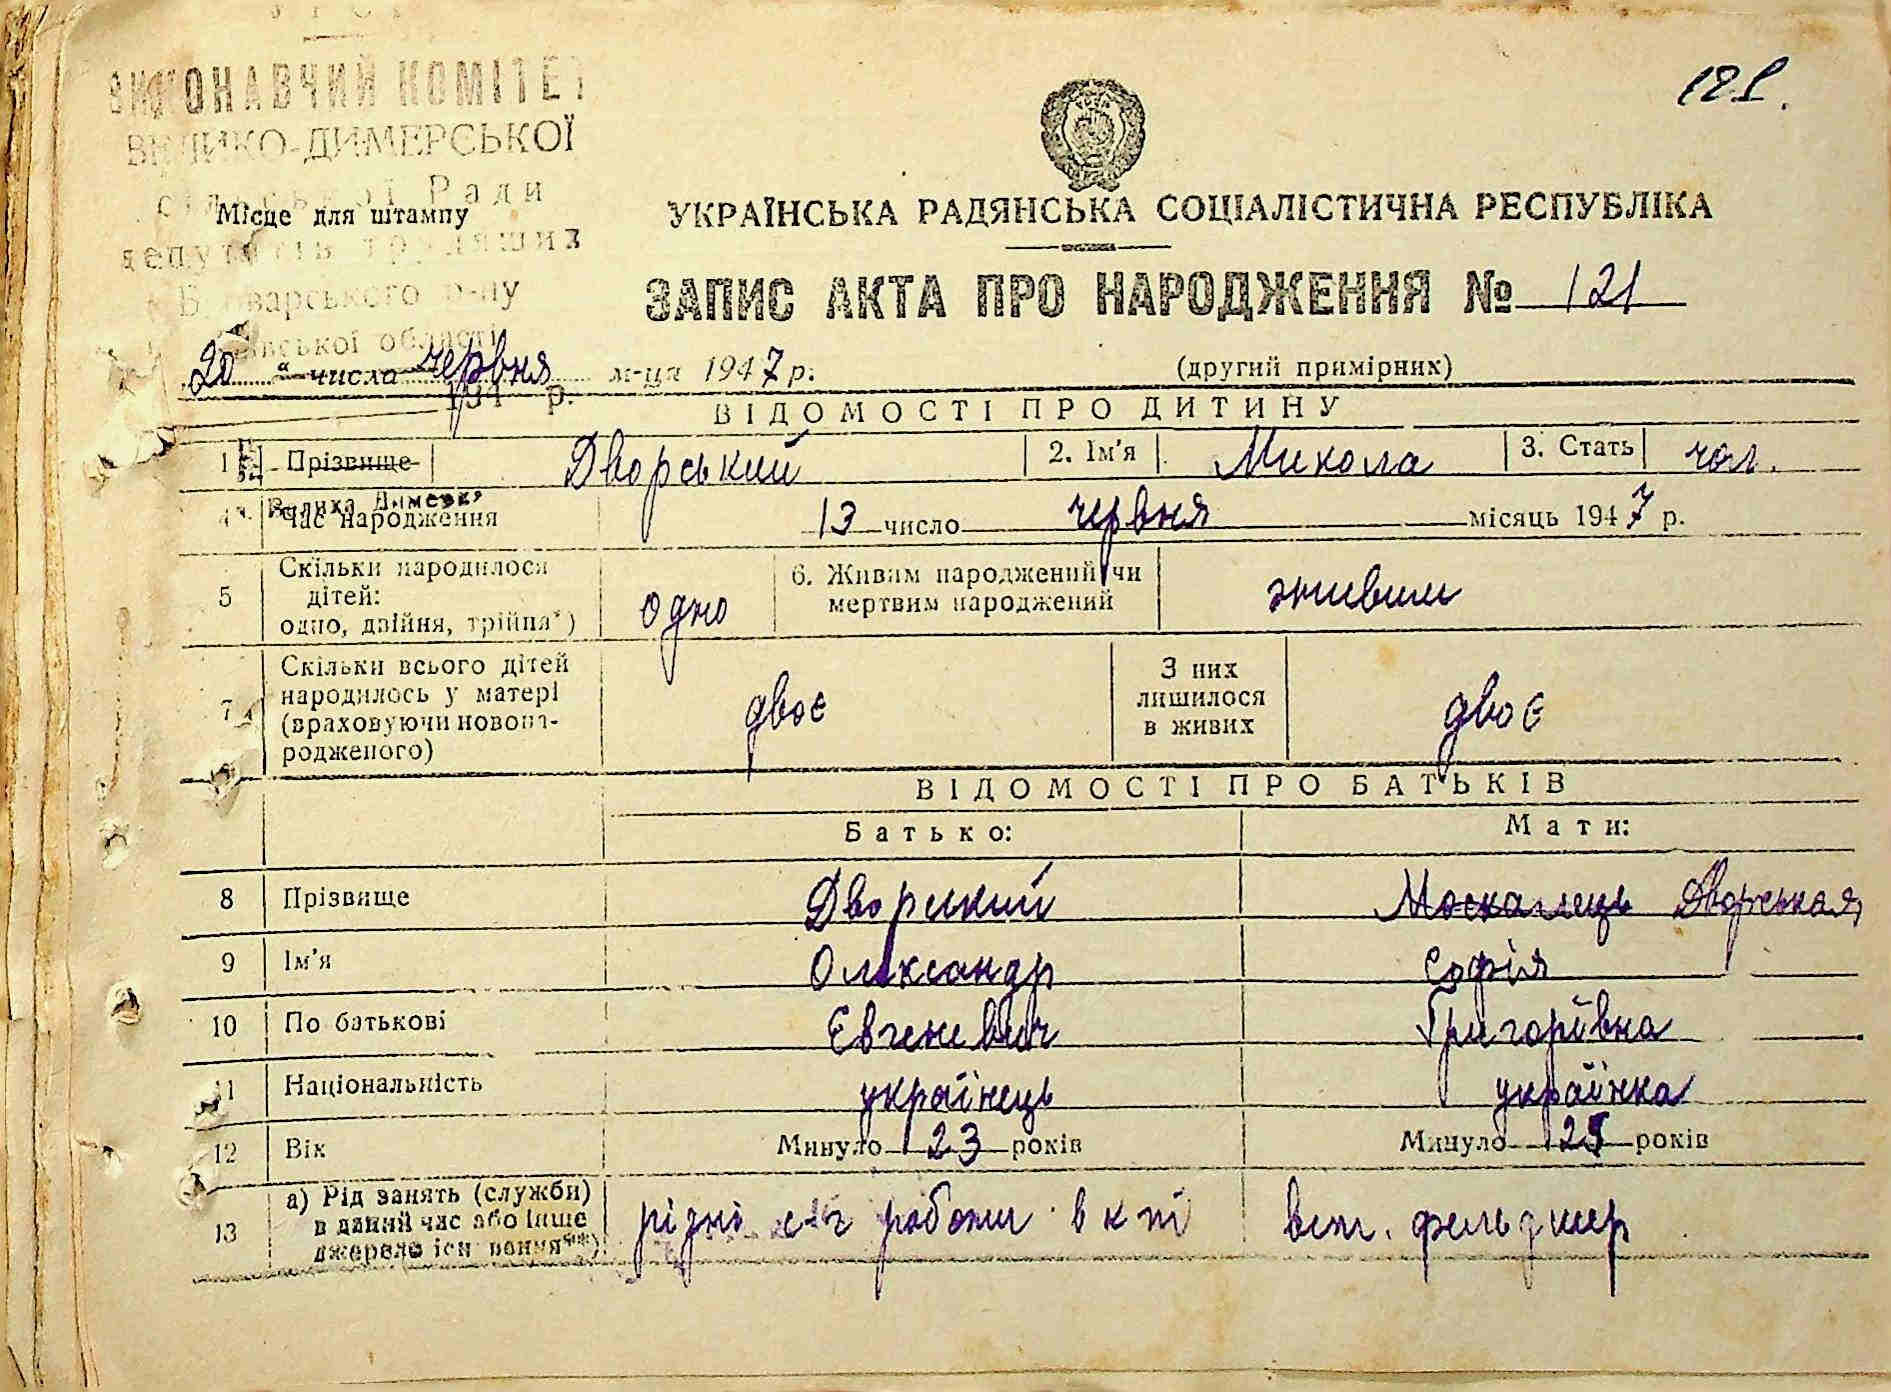 УРСР
ВИКОНАВЧИЙ КОМІТЕТ
ВЕЛИКО-ДИМЕРСЬКОЇ
сільської Ради
депутатів трудящих
Броварського р-ну
Київської області
194 р.
Місце для штампу
121.
УКРАЇНСЬКА РАДЯНСЬКА СОЦІАЛІСТИЧНА РЕСПУБЛІКА
ЗАПИС АКТА ПРО НАРОДЖЕННЯ № 121
20 " числа червня м-ця 1947 р.
(другий примірник)
ВІДОМОСТІ ПРО ДИТИНУ
1 Прізвище Дворський 2. Ім'я Микола 3. Стать чол.
Велика Димерка
4 Час народження 13 число червня місяць 1947 р.
5 Скільки народилося дітей: одно, двійня, трійня*) одно 6. Живим народжений чи мертвим народжений живим
7 Скільки всього дітей народилось у матері (враховуючи новонародженого) двоє З них лишилося в живих двоє
ВІДОМОСТІ ПРО БАТЬКІВ
Батько: Мати:
8 Прізвище Дворський Москалець Дворськая
9 Ім'я Олександр Софія
10 По батькові Євгеневич Григорівна
11 Національність українець українка
12 Вік Минуло 23 років Минуло 25 років
13 а) Рід занять (служби) в даний час або інше джерело існування**) різні роботи в вет. фельдшер